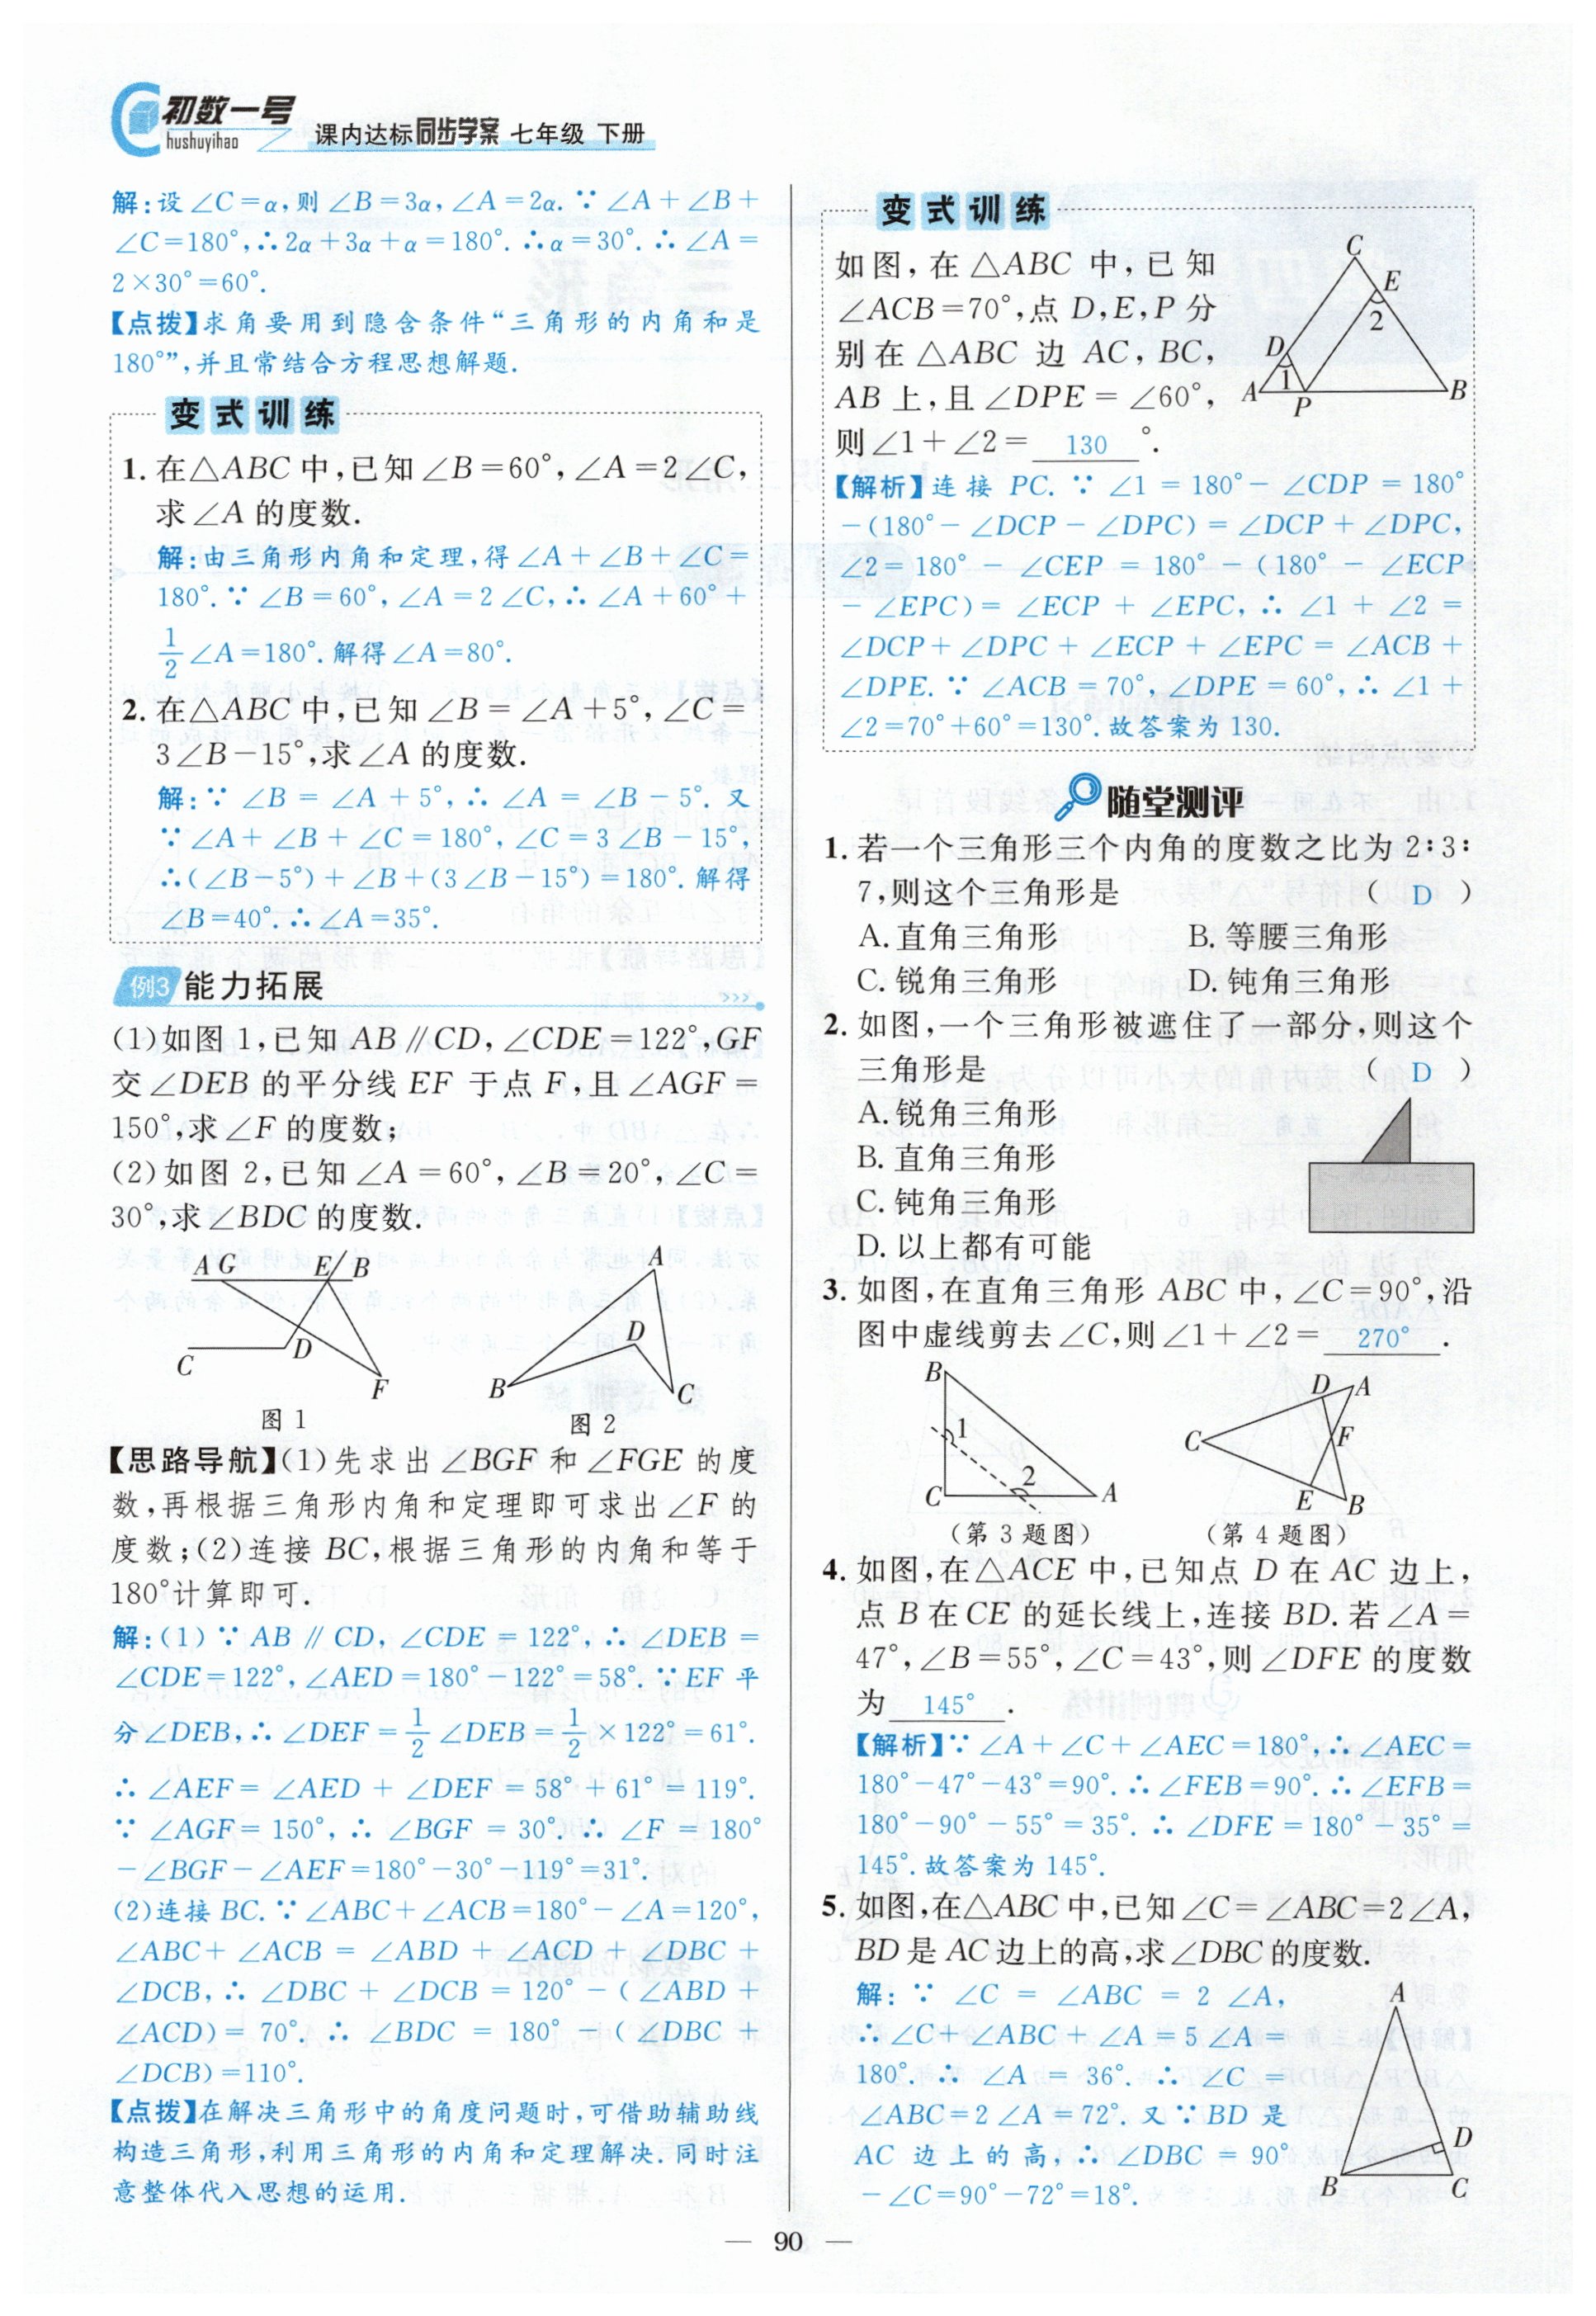 初数一号
hushuyihao
课内达标同步学案 七年级 下册
解:设∠C=α,则∠B=3α,∠A=2α.∵∠A+∠B+
∠C=180°,∴2α+3α+α=180°.∴α=30°.∴∠A=
2×30°=60°.
【点拨】求角要用到隐含条件“三角形的内角和是
180°”,并且常结合方程思想解题.
变式训练
1. 在△ABC中,已知∠B=60°,∠A=2∠C,
求∠A的度数.
解:由三角形内角和定理,得∠A+∠B+∠C=
180°.∵∠B=60°,∠A=2∠C,∴∠A+60°+
1/2∠A=180°.解得∠A=80°.
2. 在△ABC中,已知∠B=∠A+5°,∠C=
3∠B-15°,求∠A的度数.
解:∵∠B=∠A+5°,∴∠A=∠B-5°.又
∵∠A+∠B+∠C=180°,∠C=3∠B-15°,
∴(∠B-5°)+∠B+(3∠B-15°)=180°.解得
∠B=40°.∴∠A=35°.
例3 能力拓展
(1)如图1,已知AB∥CD,∠CDE=122°,GF
交∠DEB的平分线EF于点F,且∠AGF=
150°,求∠F的度数;
(2)如图2,已知∠A=60°,∠B=20°,∠C=
30°,求∠BDC的度数.
A G E B
C D F
图1
A
D
B C
图2
【思路导航】(1)先求出∠BGF和∠FGE的度
数,再根据三角形内角和定理即可求出∠F的
度数;(2)连接BC,根据三角形的内角和等于
180°计算即可.
解:(1)∵AB∥CD,∠CDE=122°,∴∠DEB=
∠CDE=122°,∠AED=180°-122°=58°.∵EF平
分∠DEB,∴∠DEF=1/2∠DEB=1/2×122°=61°.
∴∠AEF=∠AED+∠DEF=58°+61°=119°.
∵∠AGF=150°,∴∠BGF=30°.∴∠F=180°
-∠BGF-∠AEF=180°-30°-119°=31°.
(2)连接BC.∵∠ABC+∠ACB=180°-∠A=120°,
∠ABC+∠ACB=∠ABD+∠ACD+∠DBC+
∠DCB,∴∠DBC+∠DCB=120°-(∠ABD+
∠ACD)=70°.∴∠BDC=180°-(∠DBC+
∠DCB)=110°.
【点拨】在解决三角形中的角度问题时,可借助辅助线
构造三角形,利用三角形的内角和定理解决.同时注
意整体代入思想的运用.
变式训练
如图,在△ABC中,已知
∠ACB=70°,点D,E,P分
别在△ABC边AC,BC,
AB上,且∠DPE=∠60°,
则∠1+∠2=130°.
C
E
2
D
1
A P B
【解析】连接PC.∵∠1=180°-∠CDP=180°
-(180°-∠DCP-∠DPC)=∠DCP+∠DPC,
∠2=180°-∠CEP=180°-(180°-∠ECP
-∠EPC)=∠ECP+∠EPC,∴∠1+∠2=
∠DCP+∠DPC+∠ECP+∠EPC=∠ACB+
∠DPE.∵∠ACB=70°,∠DPE=60°,∴∠1+
∠2=70°+60°=130°.故答案为130.
随堂测评
1. 若一个三角形三个内角的度数之比为2:3:
7,则这个三角形是 ( D )
A.直角三角形 B.等腰三角形
C.锐角三角形 D.钝角三角形
2. 如图,一个三角形被遮住了一部分,则这个
三角形是 ( D )
A.锐角三角形
B.直角三角形
C.钝角三角形
D.以上都有可能
3. 如图,在直角三角形ABC中,∠C=90°,沿
图中虚线剪去∠C,则∠1+∠2=270°.
B
1
2
C A
(第3题图)
D A
C F
E B
(第4题图)
4. 如图,在△ACE中,已知点D在AC边上,
点B在CE的延长线上,连接BD.若∠A=
47°,∠B=55°,∠C=43°,则∠DFE的度数
为145°.
【解析】∵∠A+∠C+∠AEC=180°,∴∠AEC=
180°-47°-43°=90°.∴∠FEB=90°.∴∠EFB=
180°-90°-55°=35°.∴∠DFE=180°-35°=
145°.故答案为145°.
5. 如图,在△ABC中,已知∠C=∠ABC=2∠A,
BD是AC边上的高,求∠DBC的度数.
解:∵∠C=∠ABC=2∠A,
∴∠C+∠ABC+∠A=5∠A=
180°.∴∠A=36°.∴∠C=
∠ABC=2∠A=72°.又∵BD是
AC边上的高,∴∠DBC=90°
-∠C=90°-72°=18°.
A
D
B C
— 90 —